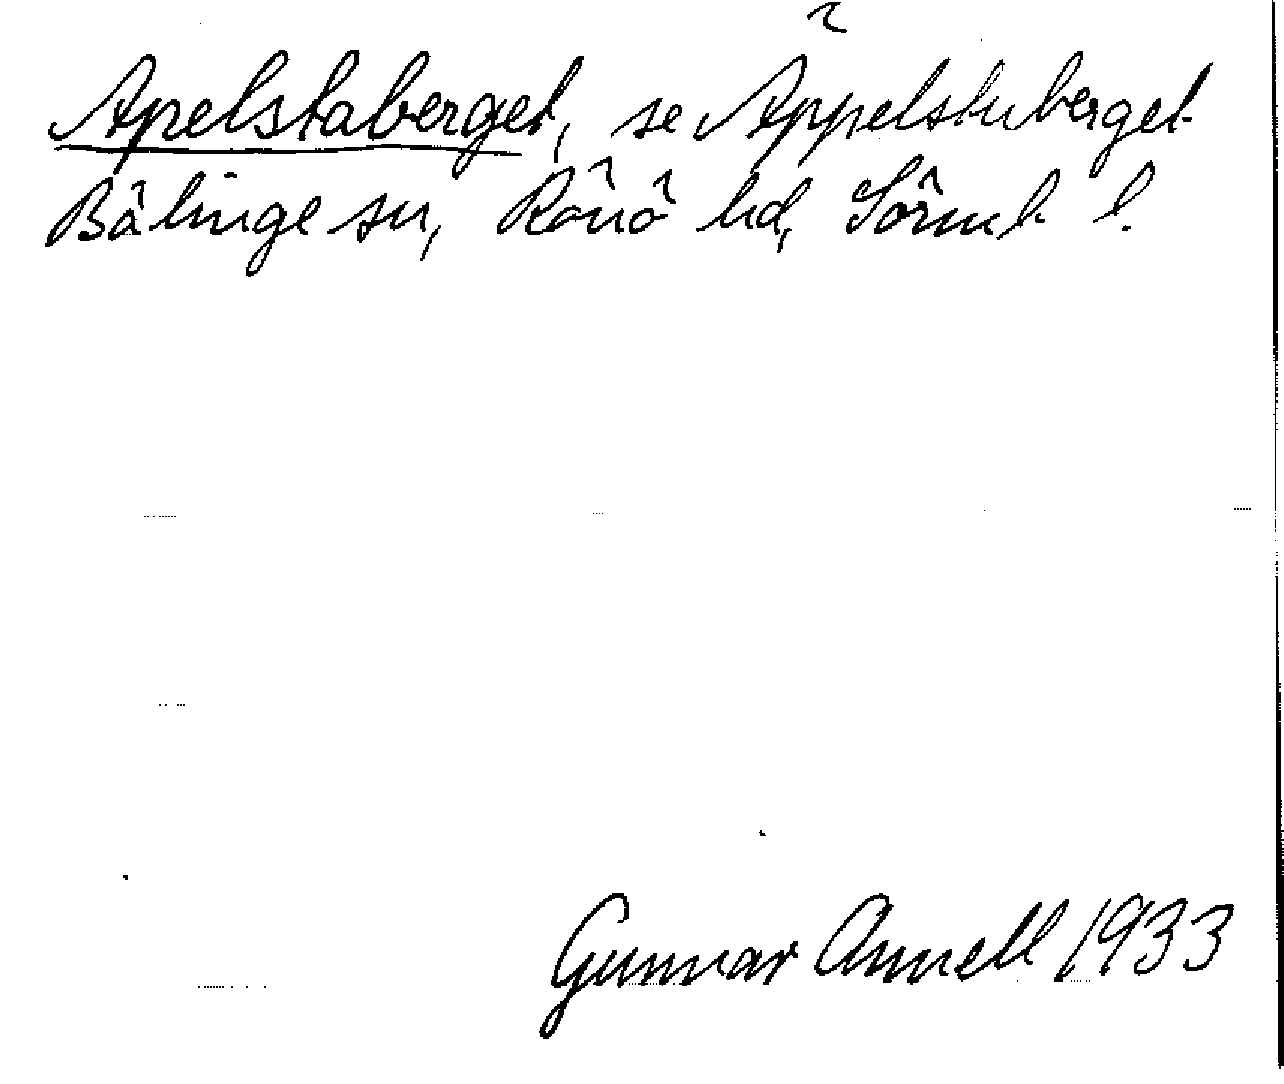 Apelstaberget, se Äppelstuberget
Bälinge sn, Rönö hd, Sörml. l.
Gunnar Annell 1933